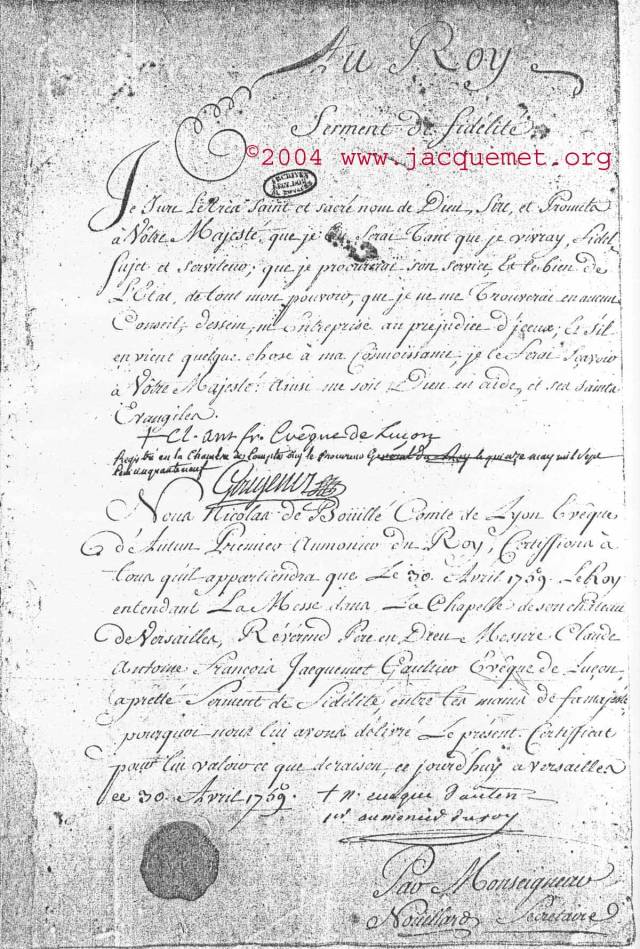 Au Roy
Serment de fidélité
©2004 www.jacquemet.org
ARCHIVES
Je Jure le trés Saint et sacré nom de Dieu, Sire, et Promets
à Vôtre Majesté, que je lui Serai Tant que je vivray, fidel
Sujet et serviteur, que je procurerai son service Et le bien de
L'Etat, de tout mon pouvoir, que je ne me Trouverai en aucun
Conseil, dessein, ni Entreprise au prejudice d'iceux, Et s'il
en vient quelque chose à ma Connoissance, je le Ferai Scavoir
à Vôtre Majesté. Ainsi me soit Dieu en aide, et ses saints
Evangiles
+ Cl. ant. fr. Evêque de Luçon
Registré en la Chambre des Comptes Ouy le Procureur General du Roy le quinze may mil Sept
Cent cinquante neuf
Nous Nicolas de Boüillé Comte de Lyon Evêque
d'Autun Premier Aumonier du Roy, Certiffions à
tous qu'il appartiendra que Le 30. Avril 1759. Le Roy
entendant La Messe dans La Chapelle de son château
de Versailles, Révérend Pere en Dieu Messire Claude
Antoine François Jacquemet Gaultier Evêque de Luçon,
a prêtté Serment de Fidélité, entre les mains de sa majesté
pourquoi nous lui avons délivré Le présent Certifficat
pour lui valoir ce que de raison, ce jourd'huy a Versailles
ce 30. Avril 1759. + N. eveque d'autun
1er aumonier du roy
Par Monseigneur
Nouellard Secretaire